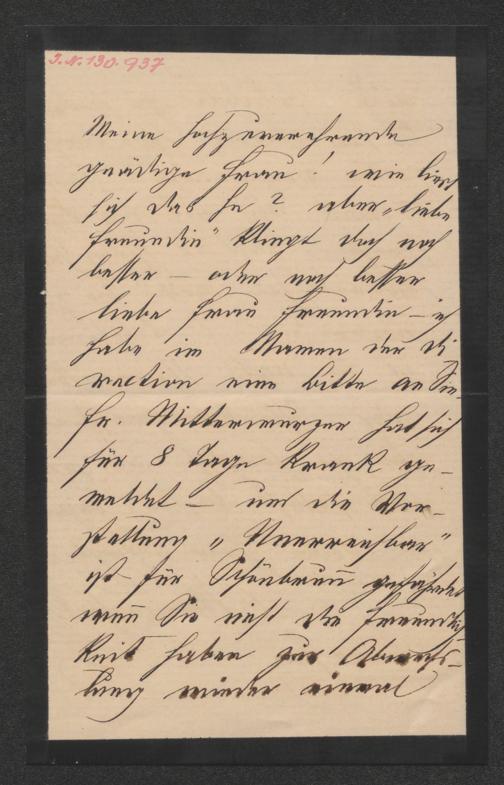 I.N. 130.937
Meine hochzuverehrende
gnädige Frau! wie liest
sich das he? aber „liebe
Freundin" klingt doch noch
besser — oder noch besser
liebe Frau Freundin — ich
habe im Namen der Di
rection eine Bitte an Sie.
Fr. Mitterwurzer hat sich
für 8 Tage krank ge-
meldet — und die Vor-
stellung „Unerreichbar"
ist für Schönbrunn gefährdet
wenn Sie nicht die Freundlich
keit haben zur Abwechs-
lung wieder einmal